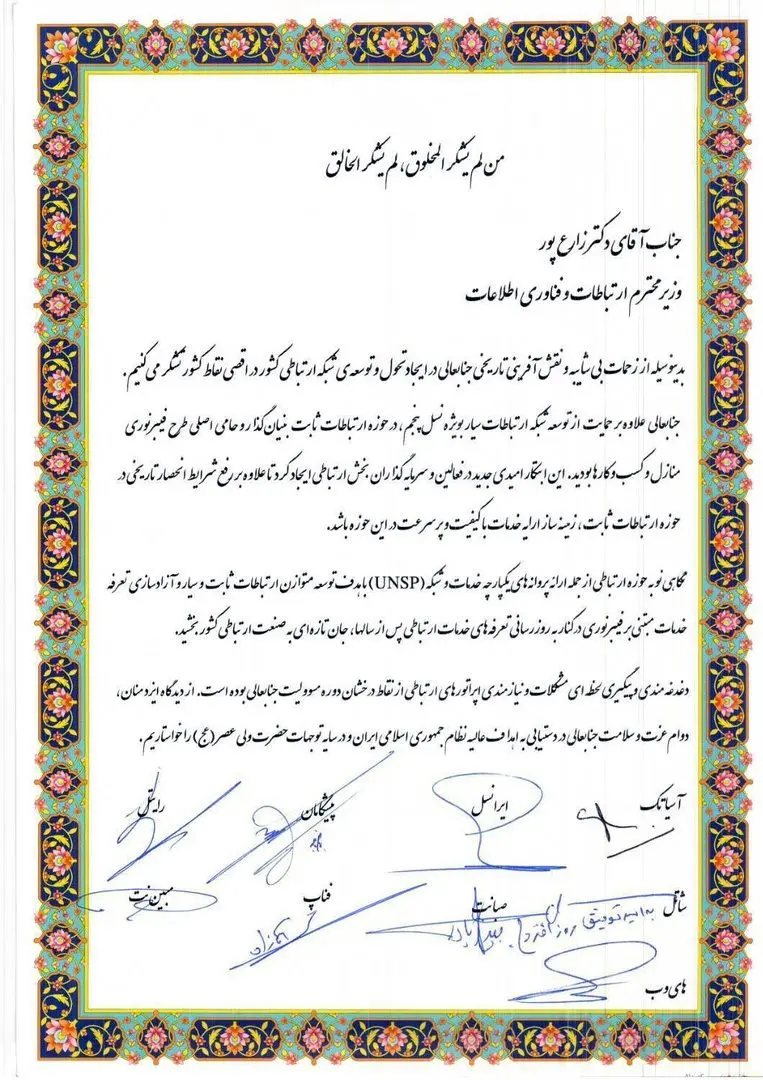 من لم یشکر المخلوق، لم یشکر الخالق
جناب آقای دکتر زارع پور
وزیر محترم ارتباطات و فناوری اطلاعات
بدینوسیله از زحمات بی شائبه و نقش آفرینی تاریخی جنابعالی در ایجاد تحول و توسعه ی شبکه ارتباطی کشور در اقصی نقاط کشور تشکر می کنیم .
جنابعالی علاوه بر حمایت از توسعه شبکه ارتباطات سیار بویژه نسل پنجم، در حوزه ارتباطات ثابت بنیان گذار و حامی اصلی طرح فیبرنوری
منازل و کسب و کارها بودید. این ابتکار امیدی جدید در فعالین و سرمایه گذاران بخش ارتباطی ایجاد کرد تا علاوه بر رفع شرایط انحصار تاریخی در
حوزه ارتباطات ثابت، زمینه ساز ارایه خدمات با کیفیت و پرسرعت در این حوزه باشد.
نگاهی نو به حوزه ارتباطی از جمله ارائه پروانه های یکپارچه خدمات و شبکه (UNSP) با هدف توسعه متوازن ارتباطات ثابت و سیار و آزادسازی تعرفه
خدمات مبتنی بر فیبرنوری در کنار به روزرسانی تعرفه های خدمات ارتباطی پس از سالها، جان تازه ای به صنعت ارتباطی کشور بخشید.
دغدغه مندی و پیگیری لحظه ای مشکلات و نیازمندی اپراتورهای ارتباطی از نقاط درخشان دوره مسوولیت جنابعالی بوده است. از دیدگاه ایزد منان،
دوام عزت و سلامت جنابعالی در دستیابی به اهداف عالیه نظام جمهوری اسلامی ایران و در سایه توجهات حضرت ولی عصر (عج) را خواستاریم .
آسیاتک ایرانسل پیشگامان رایتل
شاتل صبانت فناپ مبین نت
به امید توفیق روز افزون
های وب